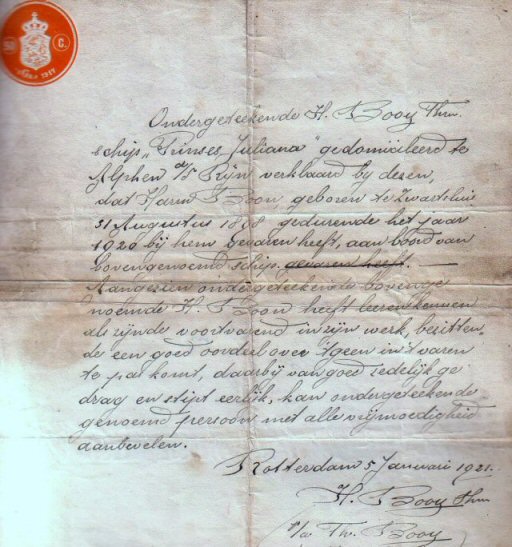 50 C.
1917
Ondergeteekende H. Booy Thzn.
schip „Prinses Juliana" gedomicileerd te
Alphen a/d Rijn verklaard bij dezen,
dat Harm Boon, geboren te Zwartsluis
31 Augustus 1898 gedurende het jaar
1920 bij hem gevaren heeft, aan boord van
bovengenoemd schip. gevaren heeft.
Aangezien ondergeteekende bovenge
noemde H. Boon heeft leeren kennen
als zijnde voortvarend in zijn werk, bezitten„
de een goed oordeel over 'tgeen in 't varen
te pas komt, daarbij van goed zedelijk ge
drag en stipt eerlijk, kan ondergeteekende
genoemd persoon met alle vrijmoedigheid
aanbevelen.
Rotterdam 5 Januari 1921.
H. Booy Thzn
Th. Booy